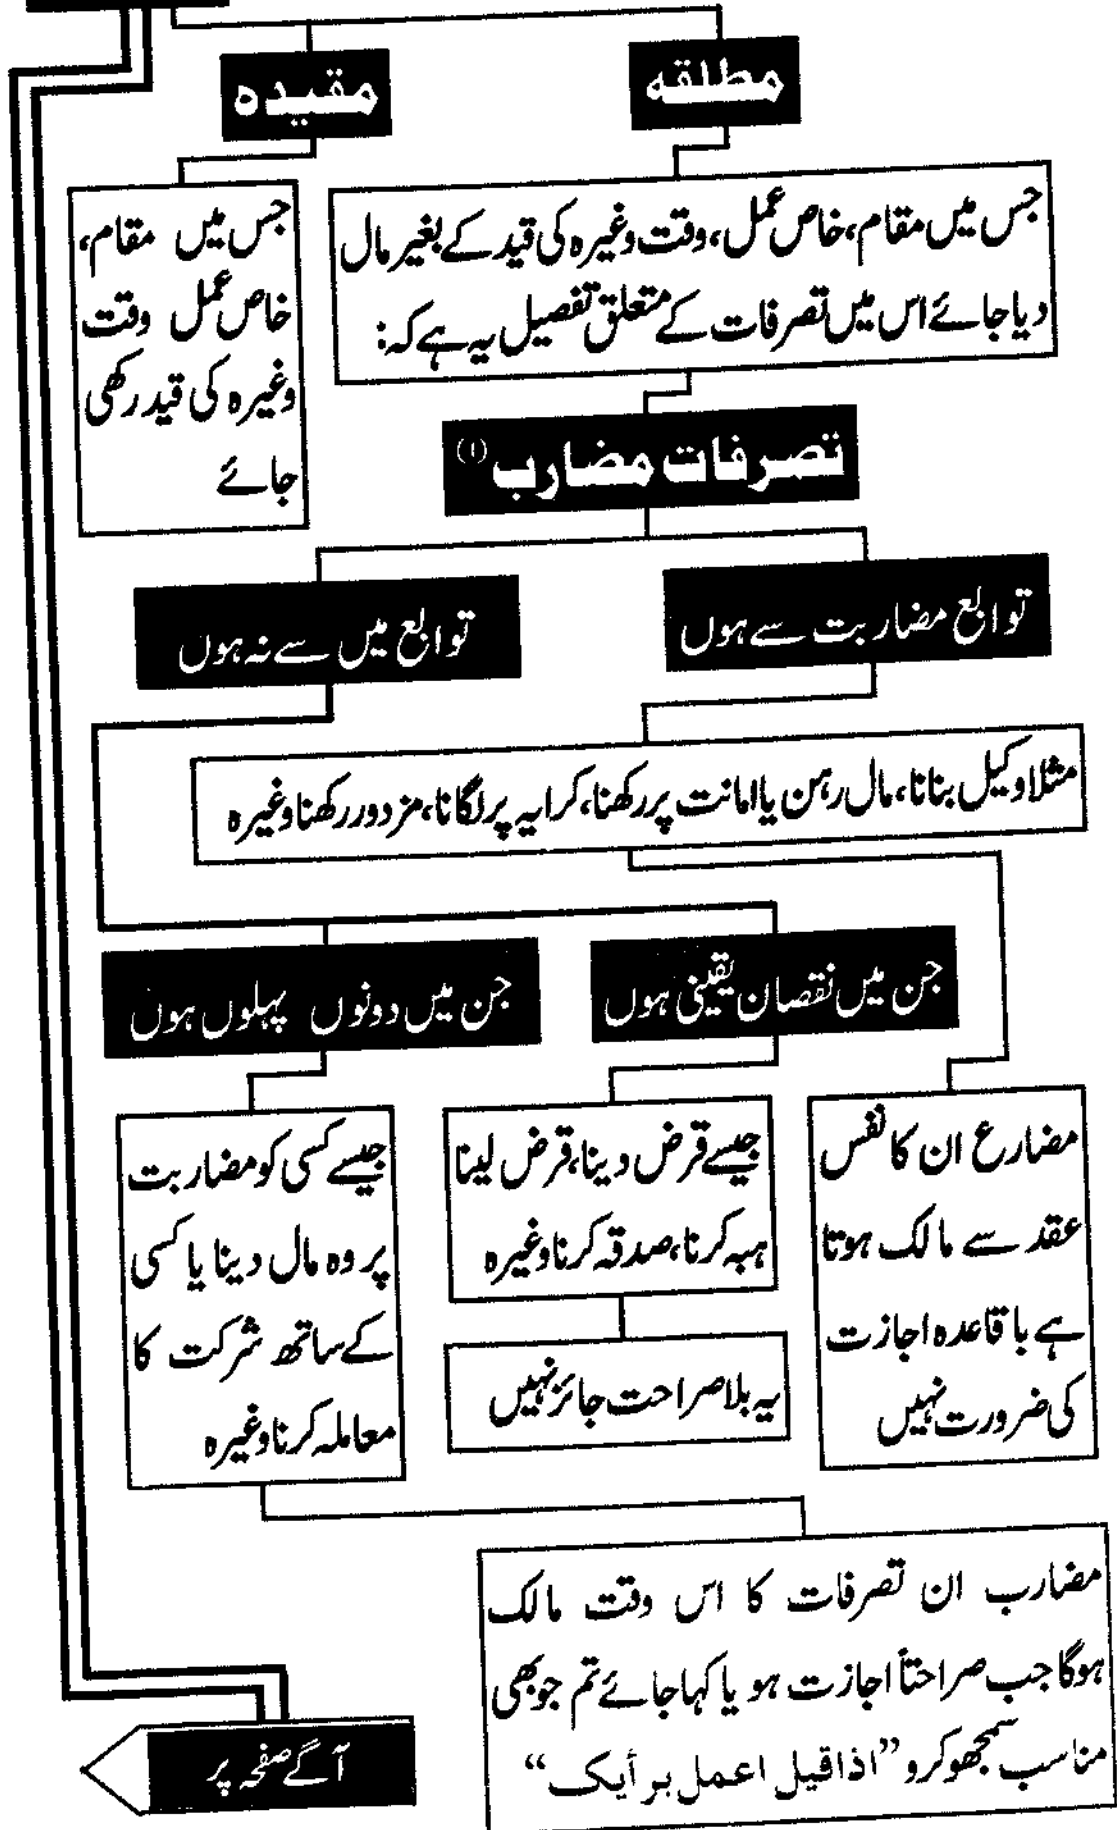 مطلقہ
مقیدہ
جس میں مقام، خاص عمل، وقت وغیرہ کی قید کے بغیر مال
دیا جائے اس میں تصرفات کے متعلق تفصیل یہ ہے کہ:
جس میں مقام،
خاص عمل وقت
وغیرہ کی قید رکھی
جائے
تصرفات مضارب (۱)
توابع مضاربت سے ہوں
توابع میں سے نہ ہوں
مثلا وکیل بنانا، مال رہن یا امانت پر رکھنا، کرایہ پر لگانا، مزدور رکھنا وغیرہ
جن میں نقصان یقینی ہوں
جن میں دونوں پہلوں ہوں
مضارع ان کا نفس
عقد سے مالک ہوتا
ہے باقاعدہ اجازت
کی ضرورت نہیں
جیسے قرض دینا، قرض لینا
ہبہ کرنا، صدقہ کرنا وغیرہ
یہ بلا صراحت جائز نہیں
جیسے کسی کو مضاربت
پر وہ مال دینا یا کسی
کے ساتھ شرکت کا
معاملہ کرنا وغیرہ
مضارب ان تصرفات کا اس وقت مالک
ہوگا جب صراحتاً اجازت ہو یا کہا جائے تم جو بھی
مناسب سمجھو کرو ”اذا قیل اعمل برأیک“
آگے صفحہ پر